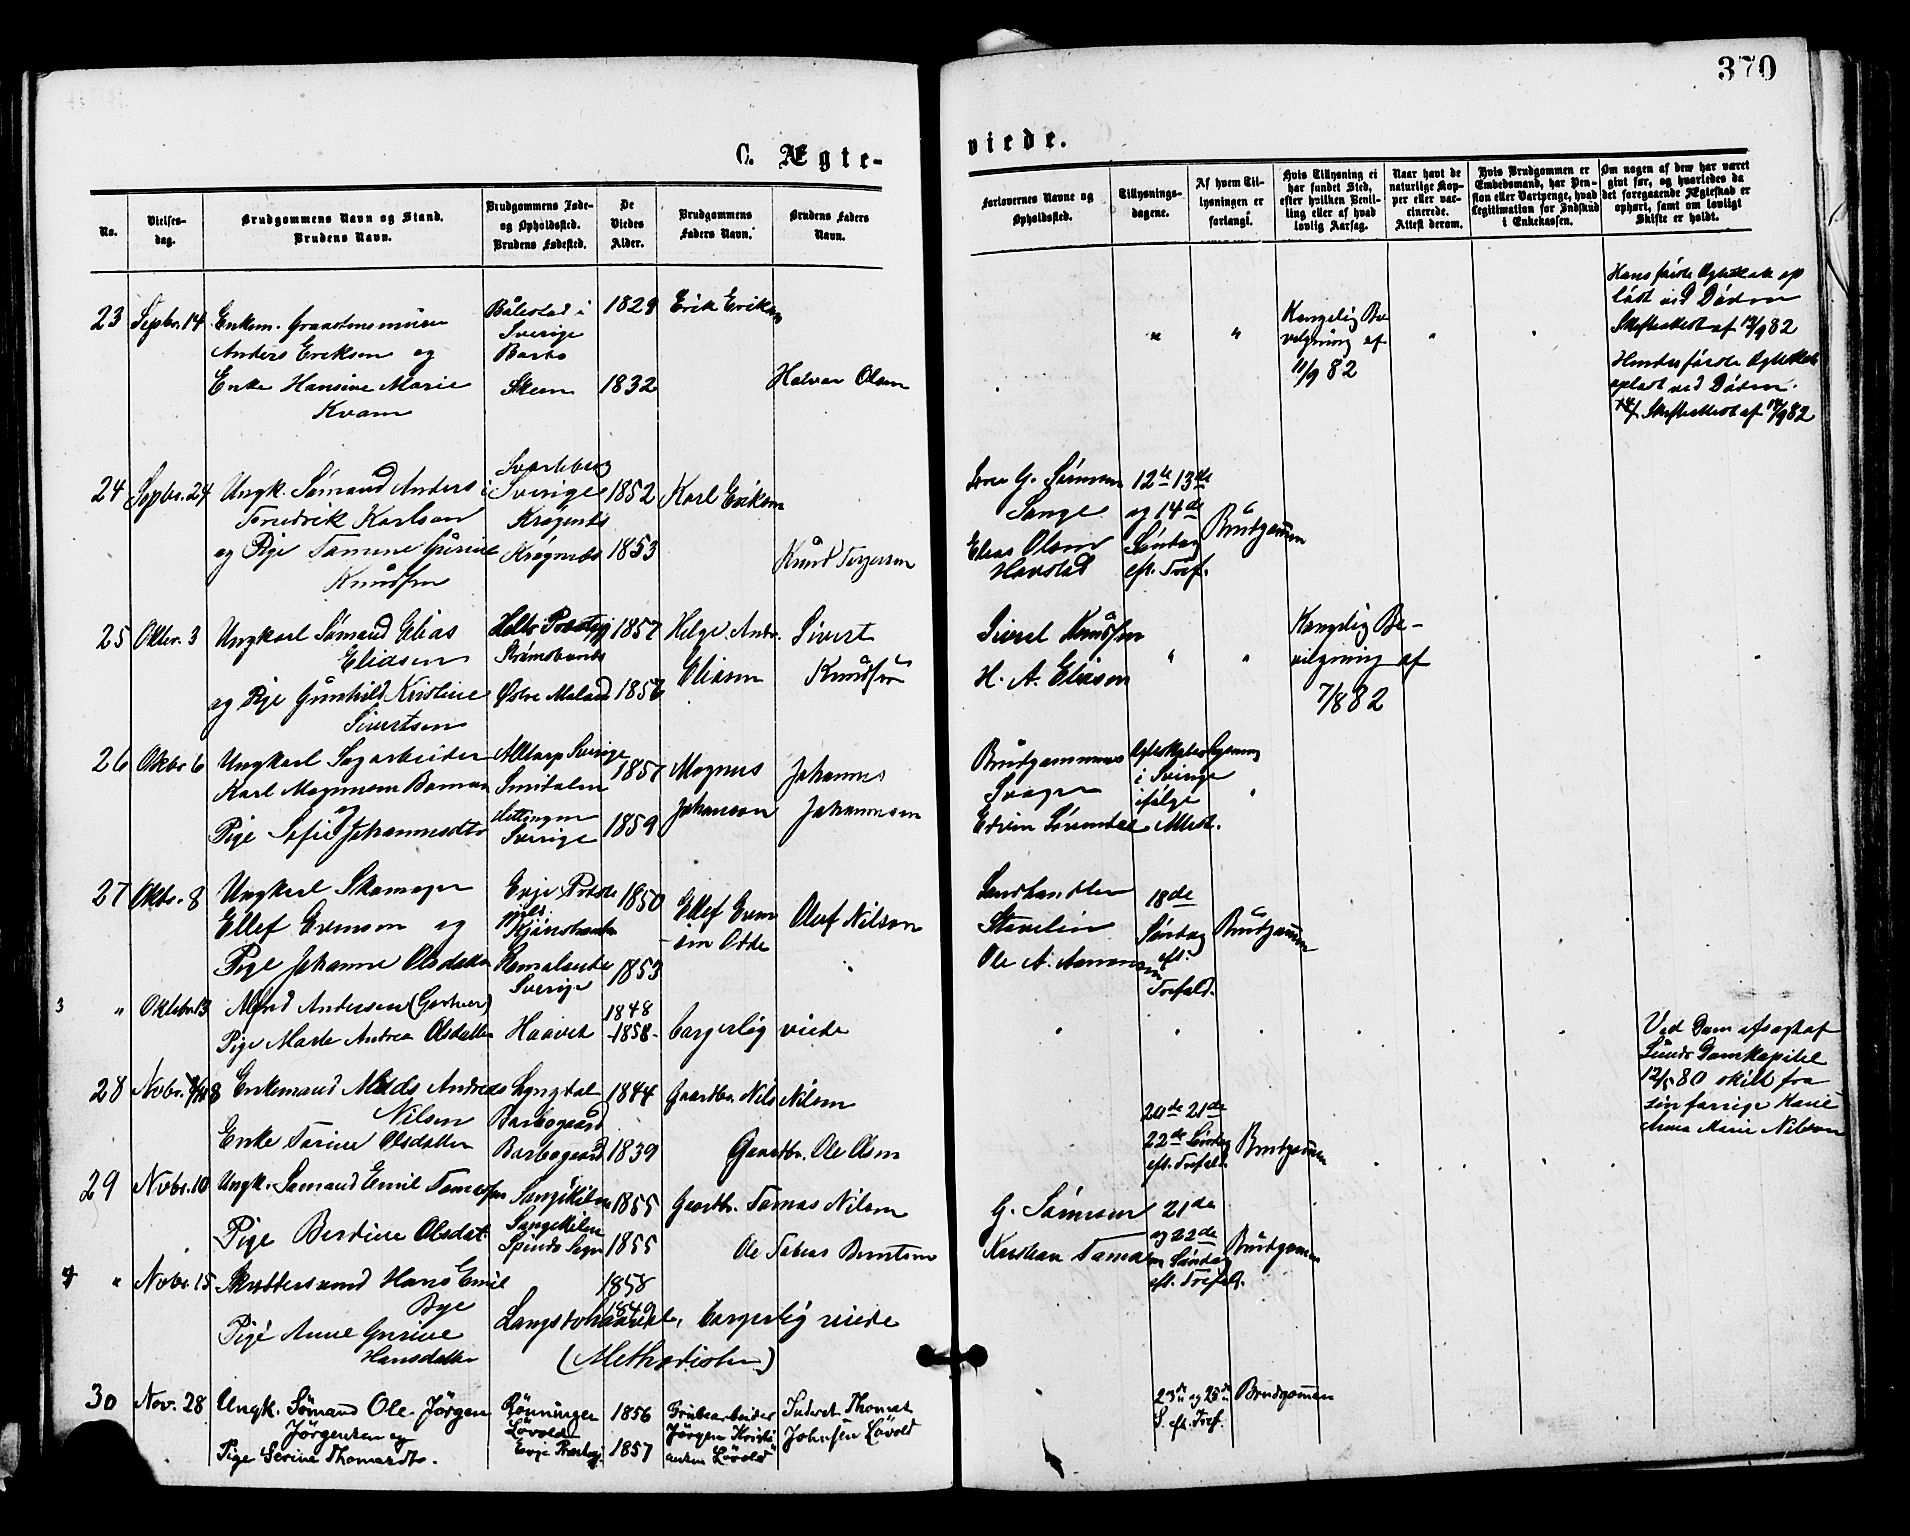 370
C. Ægte-
viede.
No.
Vielses-
dag.
Brudgommens Navn og Stand.
Brudens Navn.
Brudgommens Føde-
og Opholdssted.
Brudens Fødested.
De
Viedes
Alder.
Brudgommens
Faders Navn.
Brudens Faders
Navn.
Forlovernes Navne og
Opholdssted.
Tillysnings-
dagene.
Af hvem Til-
lysningen er
forlangt.
Hvis Tillysning ei
har fundet Sted,
efter hvilken Bevil-
ling eller af hvad
lovlig Aarsag.
Naar havt de
naturlige Kop-
per eller vac-
cinerede.
Attest derom.
Hvis Brudgommen er
Embedsmand, har Pen-
sion eller Vartpenge, hvad
Legitimation for Indskud
i Enkekassen.
Om nogen af dem har været
gift før, og hvorledes da
det foregaaende Ægteskab er
ophørt, samt om lovligt
Skifte er holdt.
23 Septbr. 14 Enkem.
Anders Eriksen og
Enke Hansine Marie
Kvam
Sverige
Barbo
Skeen
1829
1832
Erik Eriksen
Halvor Olsen
Kongelig Be
vilgning af
11/9 82
Hans første Egteskab op
løst ved Døden
Skifteattest af 12/9 82
Hendes første Egteskab
opløst ved Døden.
Skifteattest af 14/9 82
24 Septbr. 24 Ungk. Sømand Anders
Fredrik Karlsen
og Pige Tomine Gurine
Knudsen
i Sverige
Krøgenes
Krøgenes
1852
1853
Karl Eriksen
Knud Terjesen
G. Sørensen
Songe
Elias Olsen
Havstad
12te 13de
og 14de
Søndag
eft. Tref.
Brudgommen
25 Oktbr. 3 Ungkarl Sømand Elias
Eliasen
og Pige Gunhild Kristine
Sivertsen
Strømsbunes
Østre Moland
1857
1856
Helge Andr.
Eliasen
Sivert
Knudsen
Sivert Knudsen
H. A. Eliasen
Kongelig Be-
vilgning af
7/8 82
26 Oktbr 6 Ungkarl Sagarbeider
Karl Magnusson Boman
og
Pige Sofie Johannesdtr
Sverige
Smedalen
Sverige
1857
1859
Magnus
Johanson
Johannes
Johannesen
Brudgommens
Svoger
i Sverige
ifølge
Attest.
27 Oktbr. 8 Ungkarl Skomager
Ellef Evenson og
Pige Johanne Olsdatter
Evje
Sverige
1850
1853
Ellef Even
sen Odde
Oluf Nilson
Landhandler
Stavelin
Ole A. Aanonsen
18de
Søndag
eft.
Trefold.
Brudgommen
3 " Oktober 13 Alfred Andersen (Gartner)
Pige Marte Andrea Olsdatter
Haavet
1848
1858
borgerlig viede
28 Novbr. 8 Enkemand Mads Andreas
Nilsen
Enke Torine Olsdatter
Lyngdal
Barbogaard
Barbogaard
1844
1839
Gaardbr. Nils Nilsen
Gaardbr. Ole Olsen
20de 21de
22de Søndag
eft. Trefold.
Brudgommen
Ved Dom afsagt af
Lunds Domkapitel
12/5 80 skilt fra
sin forrige Kone
Anna Marie Nilson
29 Novbr. 10 Ungk. Sømand Emil Tomassen
Pige Berdine Olsdat
Songekilen
Songekilen
Spinds Sogn
1855
1855
Gaardbr. Tomas Nilsen
Ole Tobias Berntsen
G. Sørensen
Kristian Tomassen
21de
og 22de
Søndag
eft. Trefold.
Brudgommen
4 " Novbr. 15 Skræddersvend Hans Emil
Bye
Pige Anne Gurine
Hansdatter
1858
1849
borgerlig viede
(Methodister)
30 Nov. 28 Ungk. Sömand Ole Jörgen
Jörgensen og
Pige Serine Thomasdtr.
Rönningen
Lövold
Evje Præstegj
1856
1857
Grubearbeider
Jörgen Kristi
ansen Lövold
Inderst Thomas
Johnsen Lövold
23de og 25de
S. eft. Tref.
Brudgommen